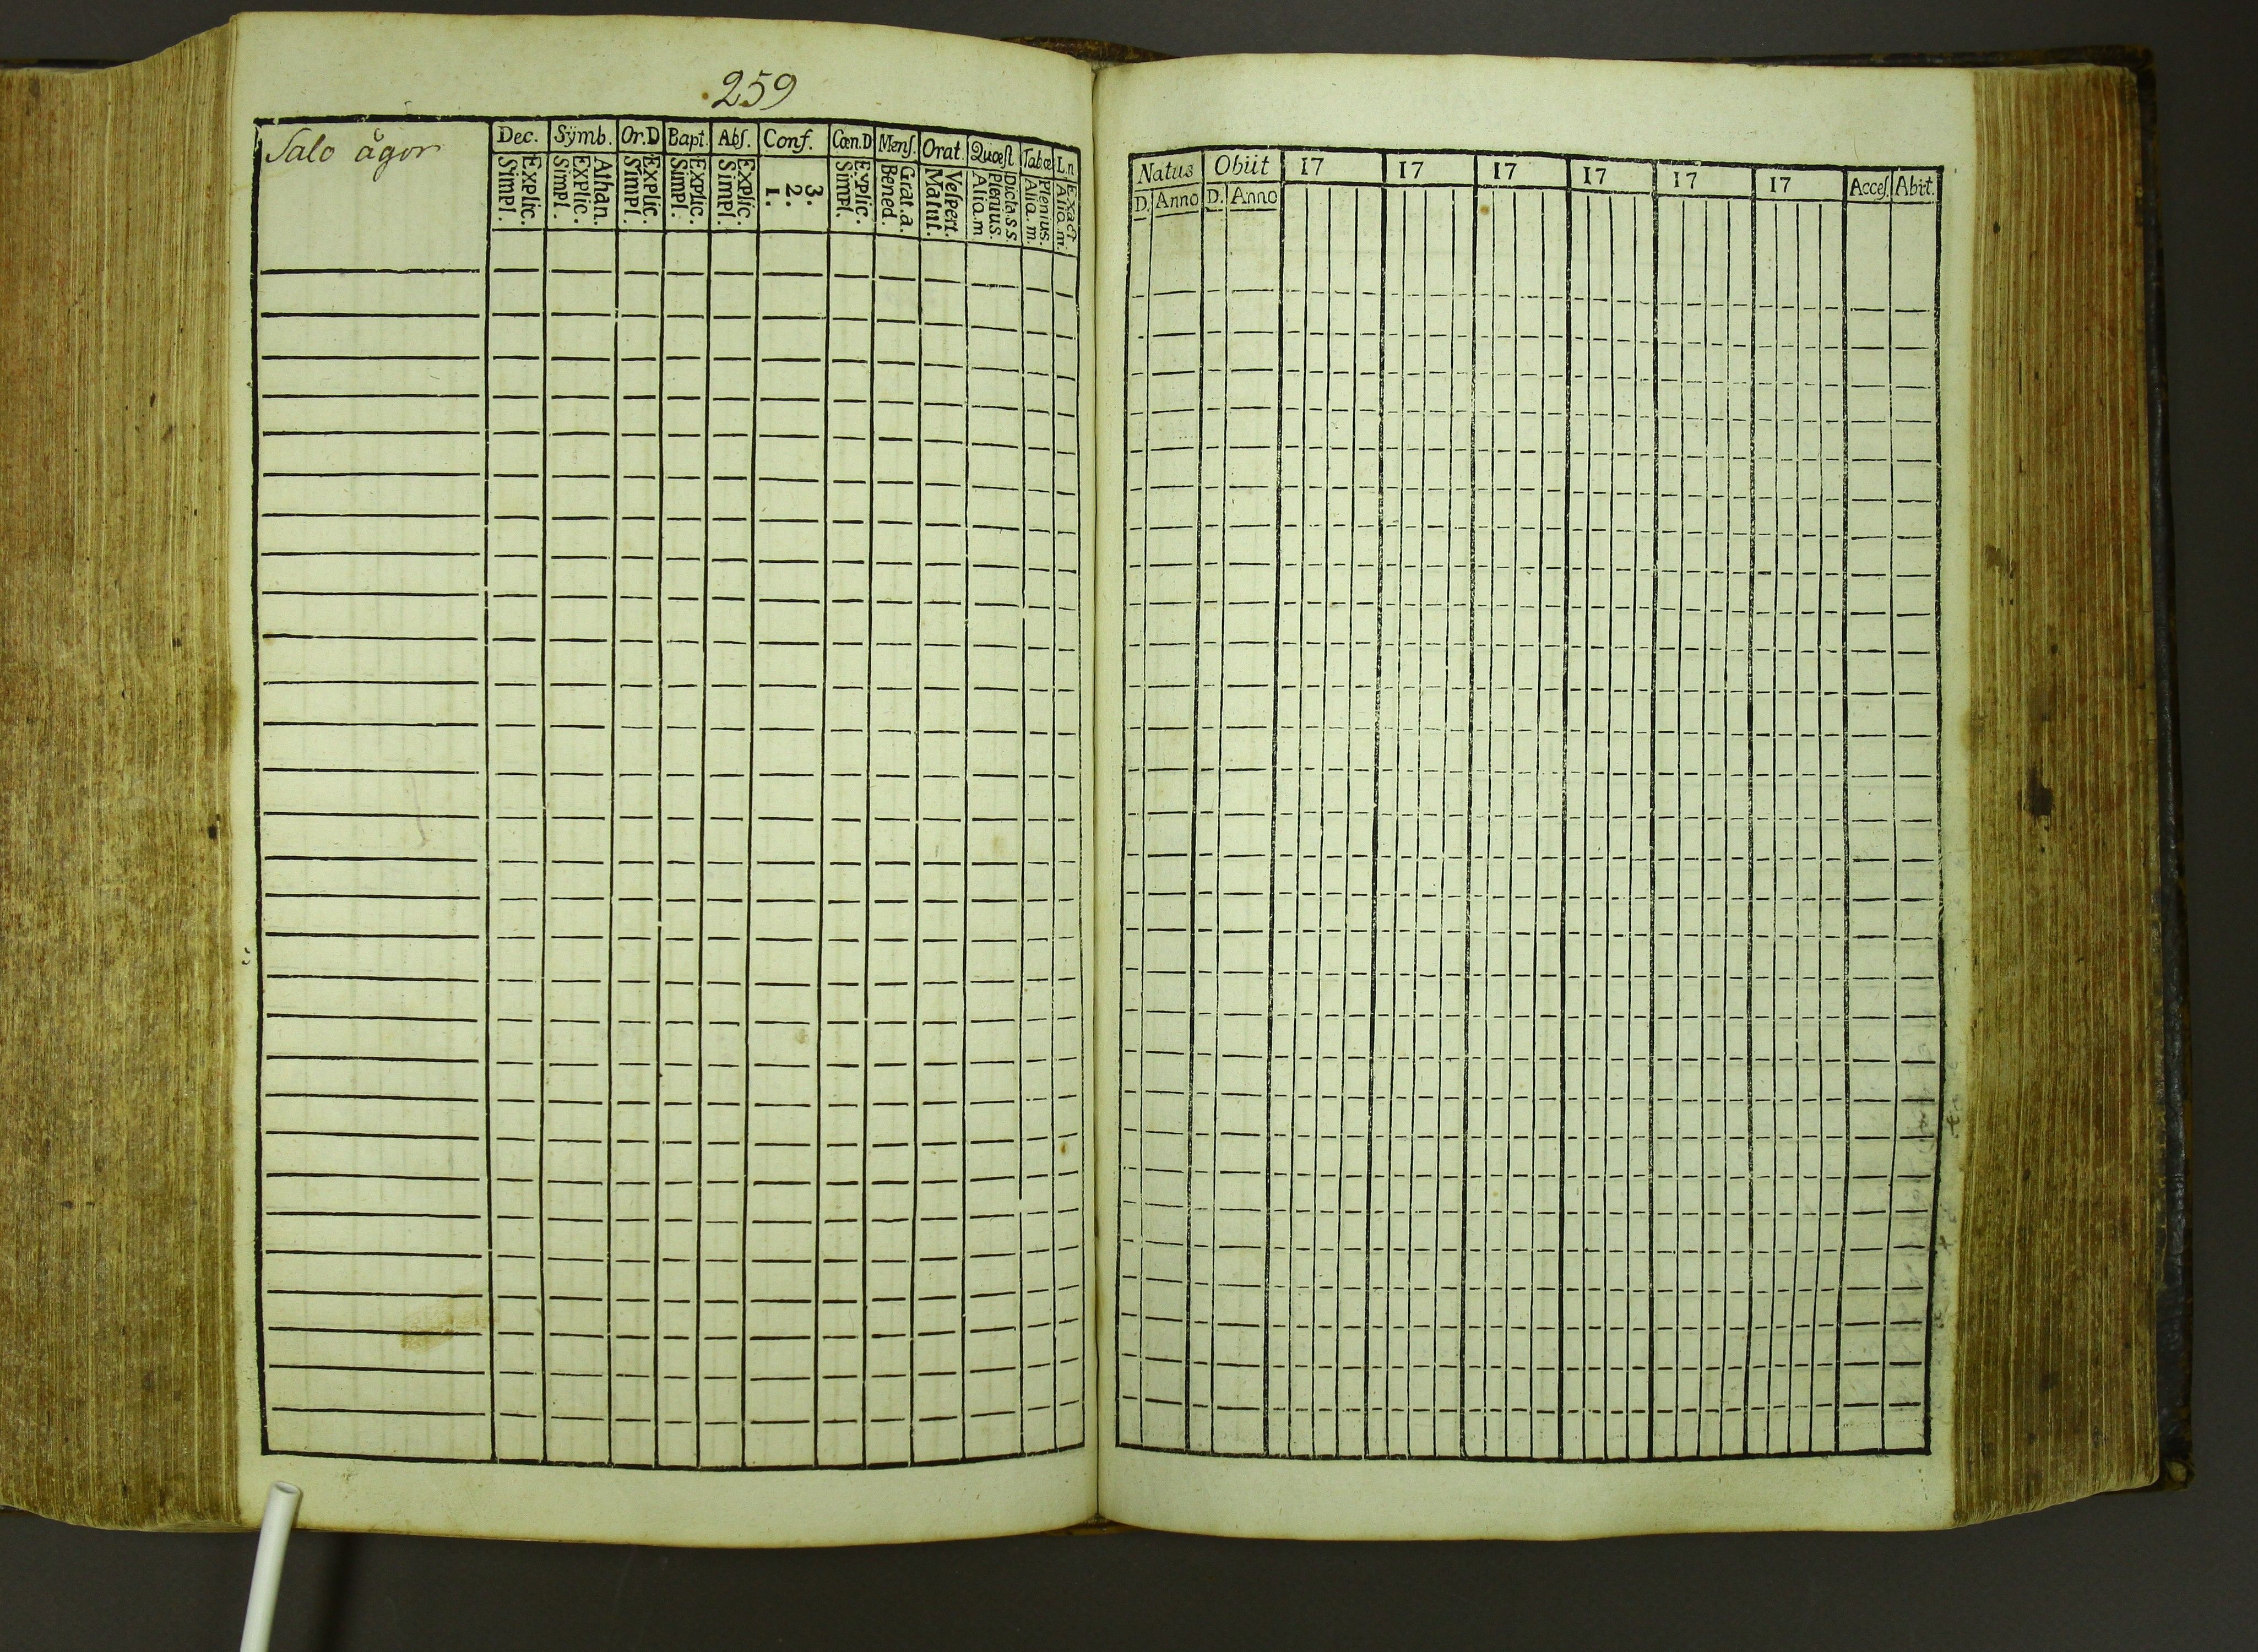 259
Salo ägor
Dec. Sÿmb. Or.D Bapt. Abſ. Conf. Cœn.D Menſ. Orat. Quæſt Tabœ L.n
Explic. Simpl. Athan. Explic. Simpl. Explic. Simpl. Explic. Simpl. Explic. Simpl. 3. 2. 1. Explic. Simpl. Grat.a. Bened. Veſpert. Matut. Dicta.s.s. Plenius. Aliq.m Plenius. Aliq.m. Exact Aliq.m.
Natus Obiit 17 17 17 17 17 17 Acceſ. Abit.
D. Anno D. Anno